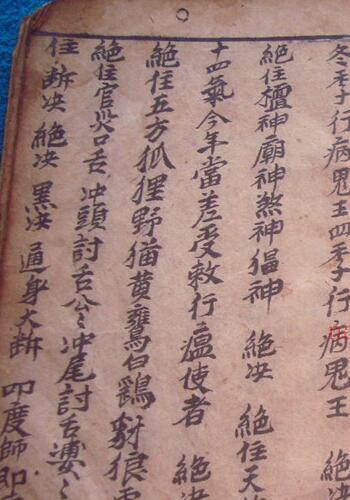 冬季子行病鬼王四季子行病鬼王 絕
絕住壇神廟神煞神猖神 絕决 絕住天
十四氣今年當差受敕行瘟使者 絕
絕住五方狐狸野猫黄鶯白鷄豺狼
絕住官災口舌冲頭討舌公〻冲尾討舌婆〻
住 斷决 絕决 黑决 通身大斷 即度師即